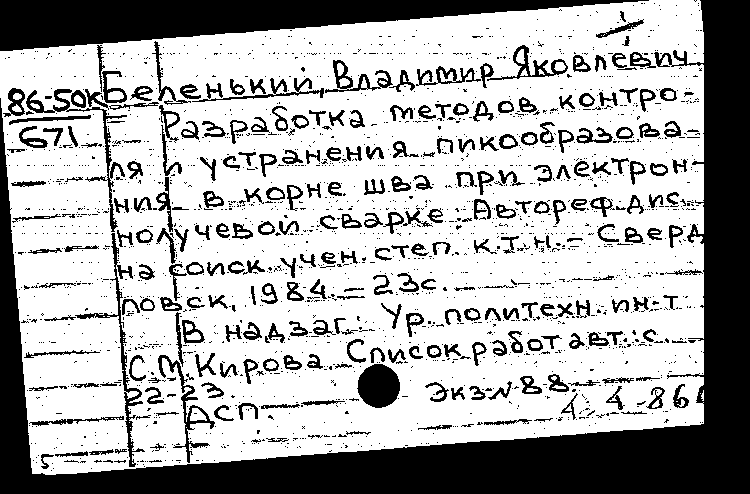 86-50к Беленький, Владимир Яковлевич
671 Разработка методов контро-
ля и устранения пикообразова-
ния в корне шва при электрон-
нолучевой сварке: Автореф. дис.
на соиск. учен. степ. к.т.н. - Сверд
ловск, 1984. - 23с.
В надзаг: Ур. политехн. ин-т
С.М. Кирова. Список работ авт.: с.
22-23.
Экз. N 88
ДСП.
4 4-86
5